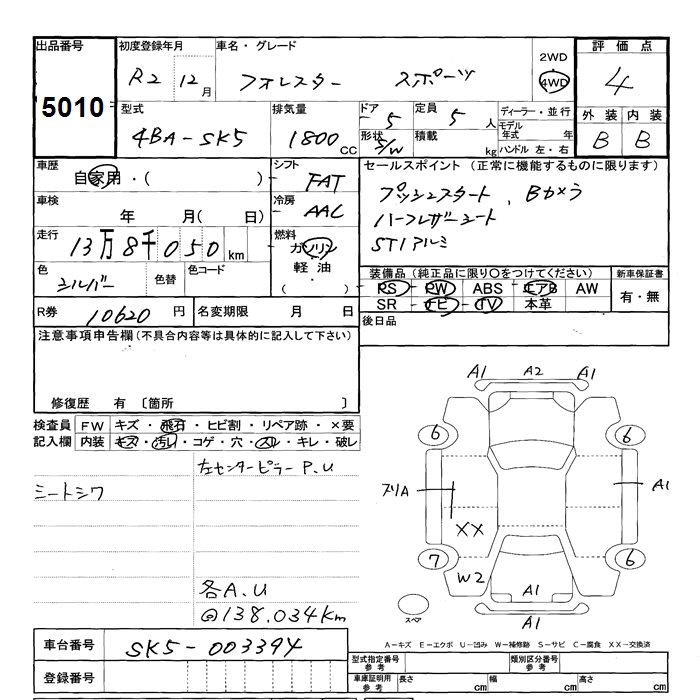 出品番号 初度登録年月 車名・グレード 評価点
5010 R2 12月 フォレスター スポーツ 2WD 4WD 4
型式 排気量 ドア 定員 ディーラー・並行 外装 内装
4BA-SK5 1800cc 5 5人 モデル年式 年 B B
形状 S/W 積載 kg ハンドル 左・右
車歴 自家用・( ) シフト FAT
セールスポイント (正常に機能するものに限ります)
プッシュスタート、Bカメラ
ハーフレザーシート
STIアルミ
車検 年 月( 日) 冷房 AAC
走行 13万8千050km 燃料 ガソリン 軽油 ( )
色 シルバー 色替 色コード
装備品 (純正品に限り○をつけてください) 新車保証書
PS PW ABS エアB AW 有・無
SR ナビ TV 本革
R券 10620円 名変期限 月 日
後日品
注意事項申告欄(不具合内容等は具体的に記入して下さい)
修復歴 有 〔箇所 〕
検査員 FW キズ・飛石・ヒビ割・リペア跡・×要
記入欄 内装 キズ・汚れ・コゲ・穴・スレ・キレ・破レ
左センターピラーP.U
シートシワ
各A.U
@138.034km
A1 A2 A1
6 6
スリA A1
XX
7 6
W2 A1
スペア A1
A-キズ E-エクボ U-凹み W-補修跡 S-サビ C-腐食 XX-交換済
車台番号 SK5-003394
登録番号
型式指定番号 参考 類別区分番号 参考
車庫証明用 参考 長さ cm 幅 cm 高さ cm